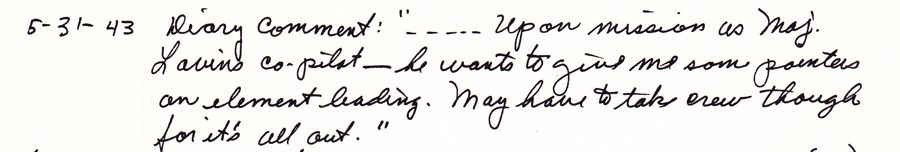 5-31-43 Diary Comment: "----- Upon mission as Maj.
Lavin's co-pilot — he wants to give me som pointers
on element leading. May have to take crew though
for it's all out."